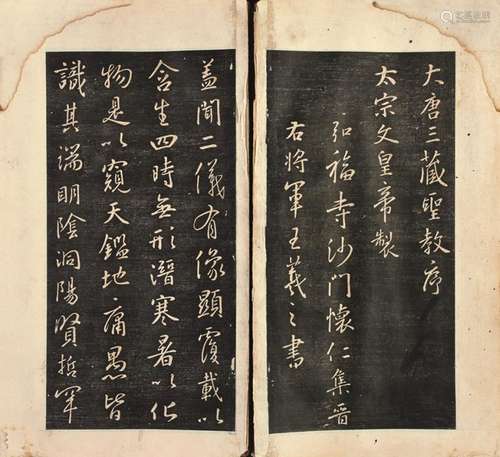 大唐三藏聖教序
太宗文皇帝製
弘福寺沙門懷仁集晉
右將軍王羲之書
蓋聞二儀有像顯覆載以
含生四時無形潛寒暑以化
物是以窺天鑑地庸愚皆
識其端明陰洞陽賢哲罕